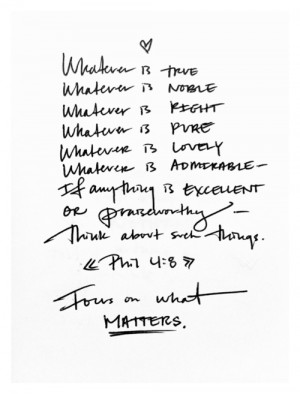 Whatever is TRUE
Whatever is NOBLE
Whatever is RIGHT
Whatever is PURE
Whatever is LOVELY
Whatever is ADMIRABLE –
If anything is EXCELLENT
OR praiseworthy –
Think about such things.
« Phil 4:8 »
Focus on what
MATTERS.